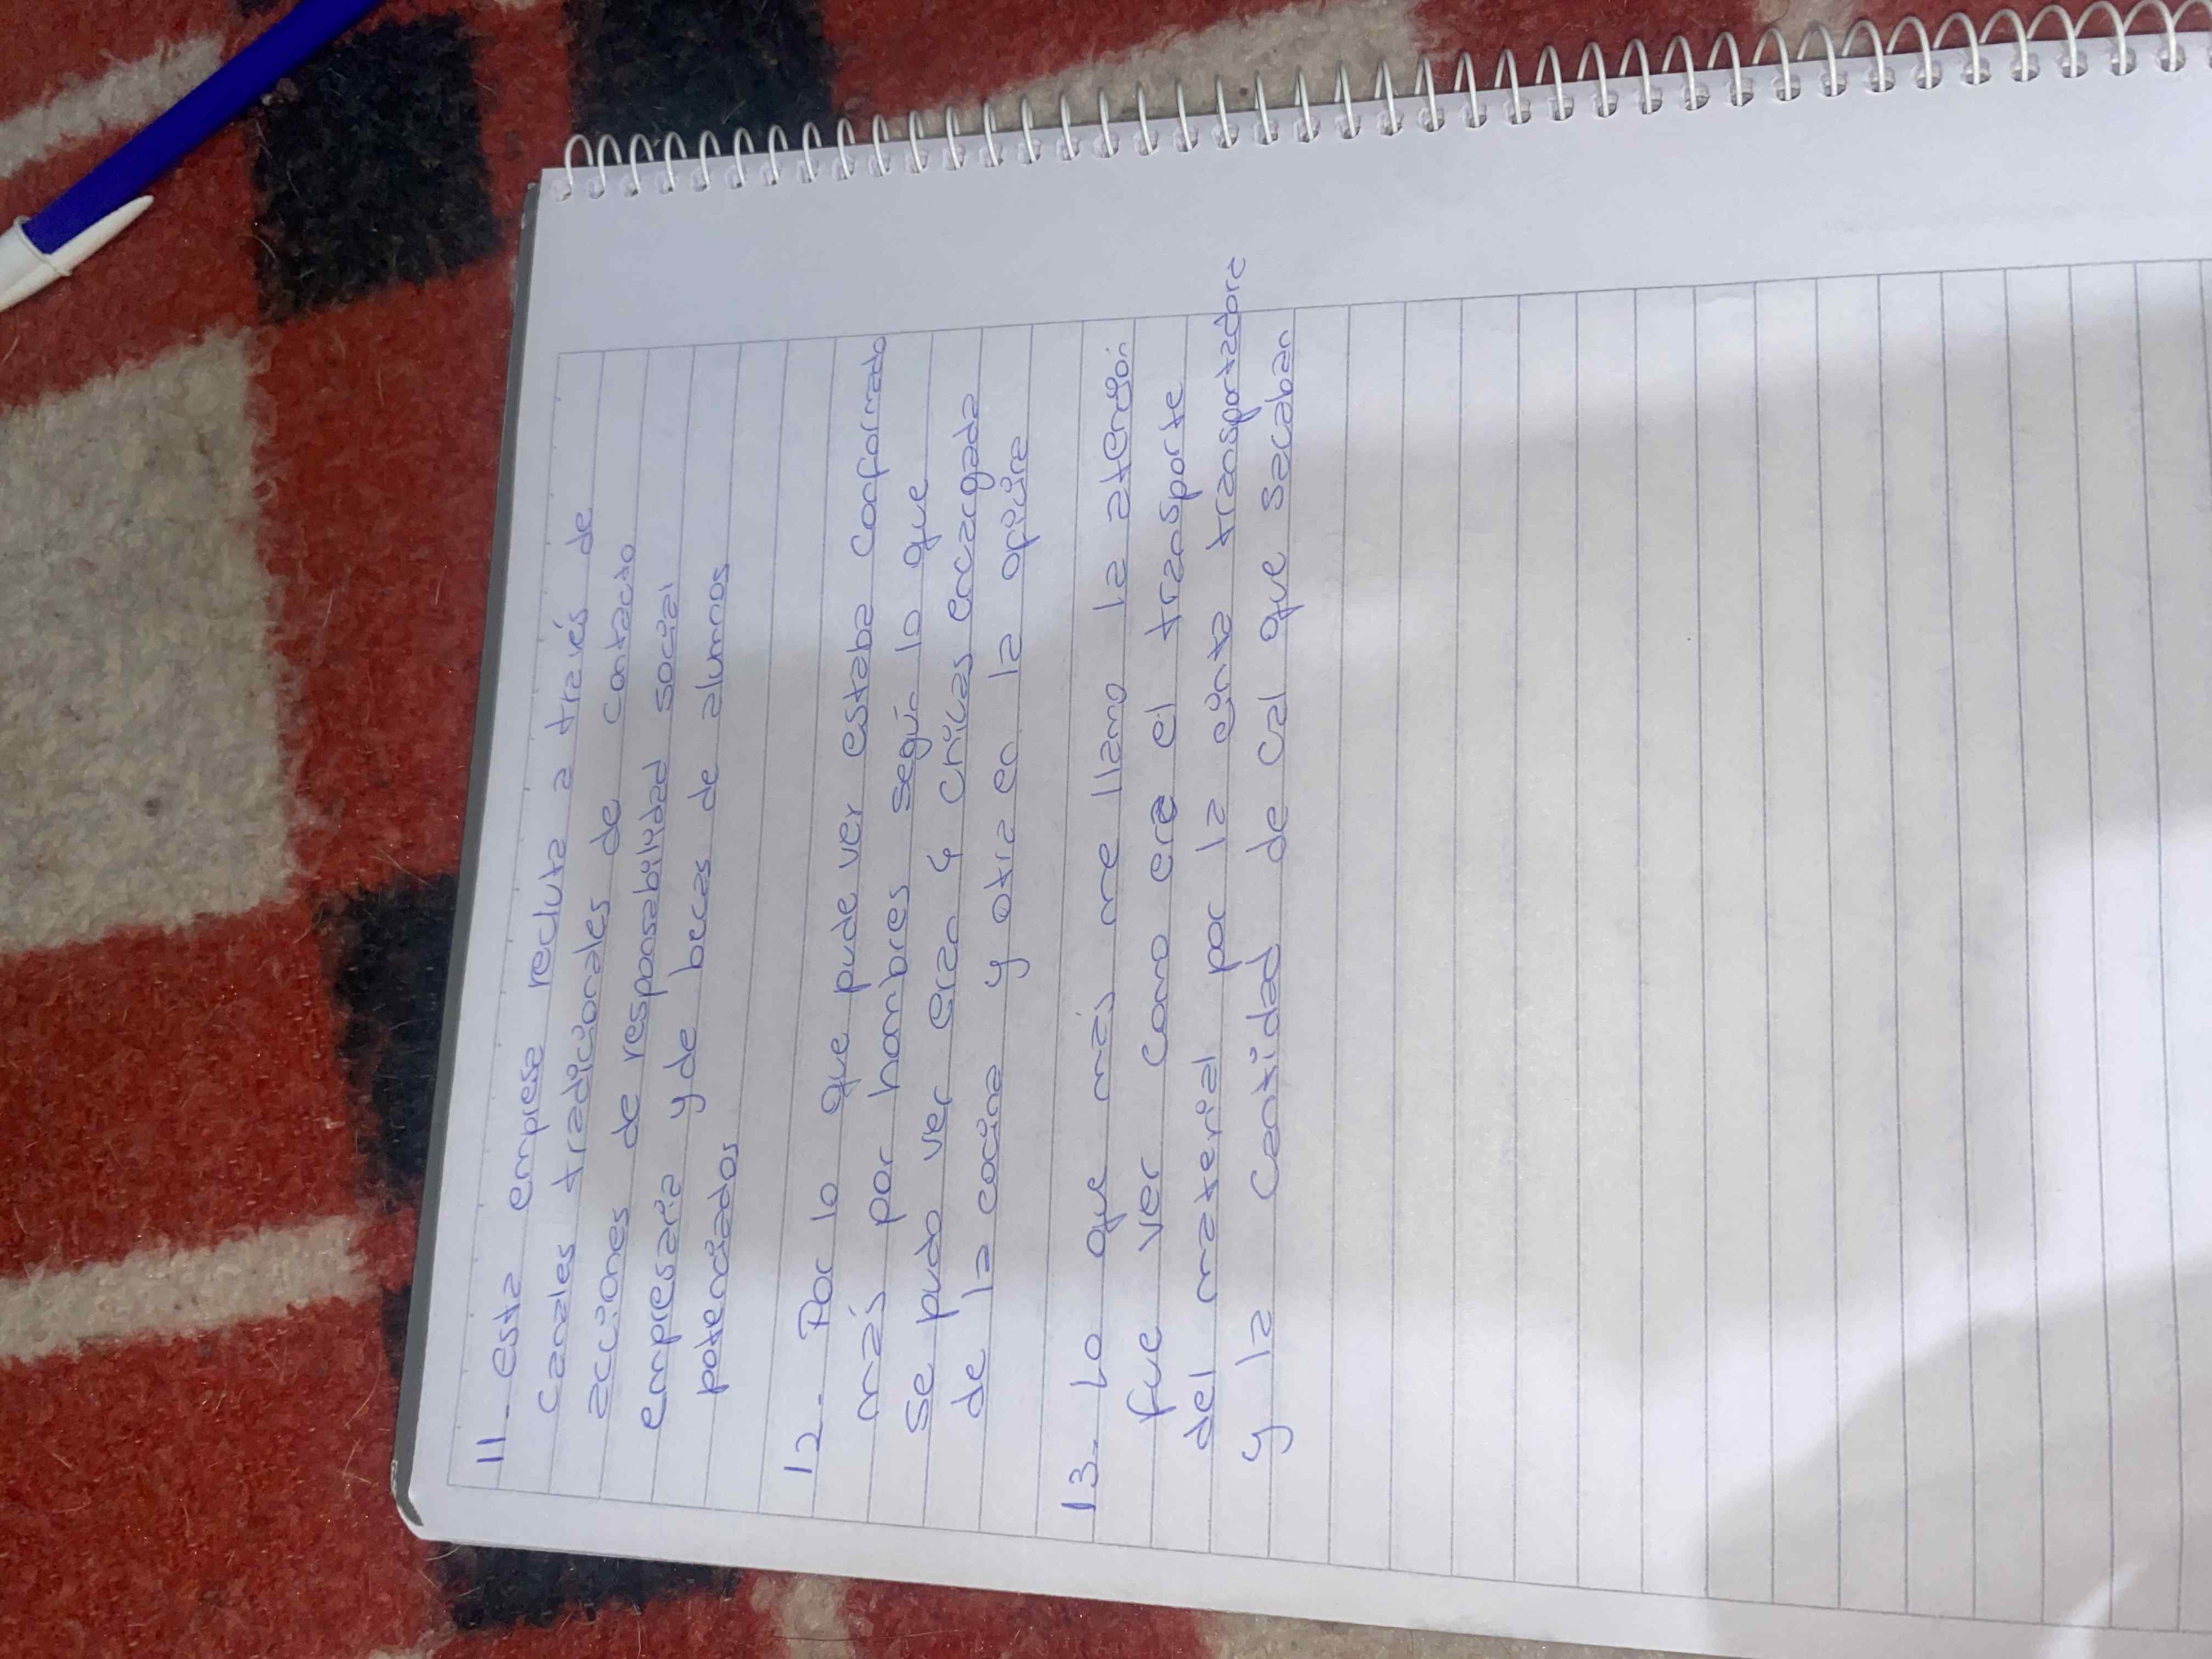 11- esta empresa recluta a través de
canales tradicionales de contacto
acciones de responsabilidad social
empresaria y de becas de alumnos
potenciados
12- Por lo que pude ver estaba conformado
más por hombres según lo que
se pudo ver eran 4 chicas encargada
de la cocina y otra en la oficina
13- Lo que más me llamo la atención
fue ver como era el transporte
del material por la cinta transportadora
y la Cantidad de cal que sacaban